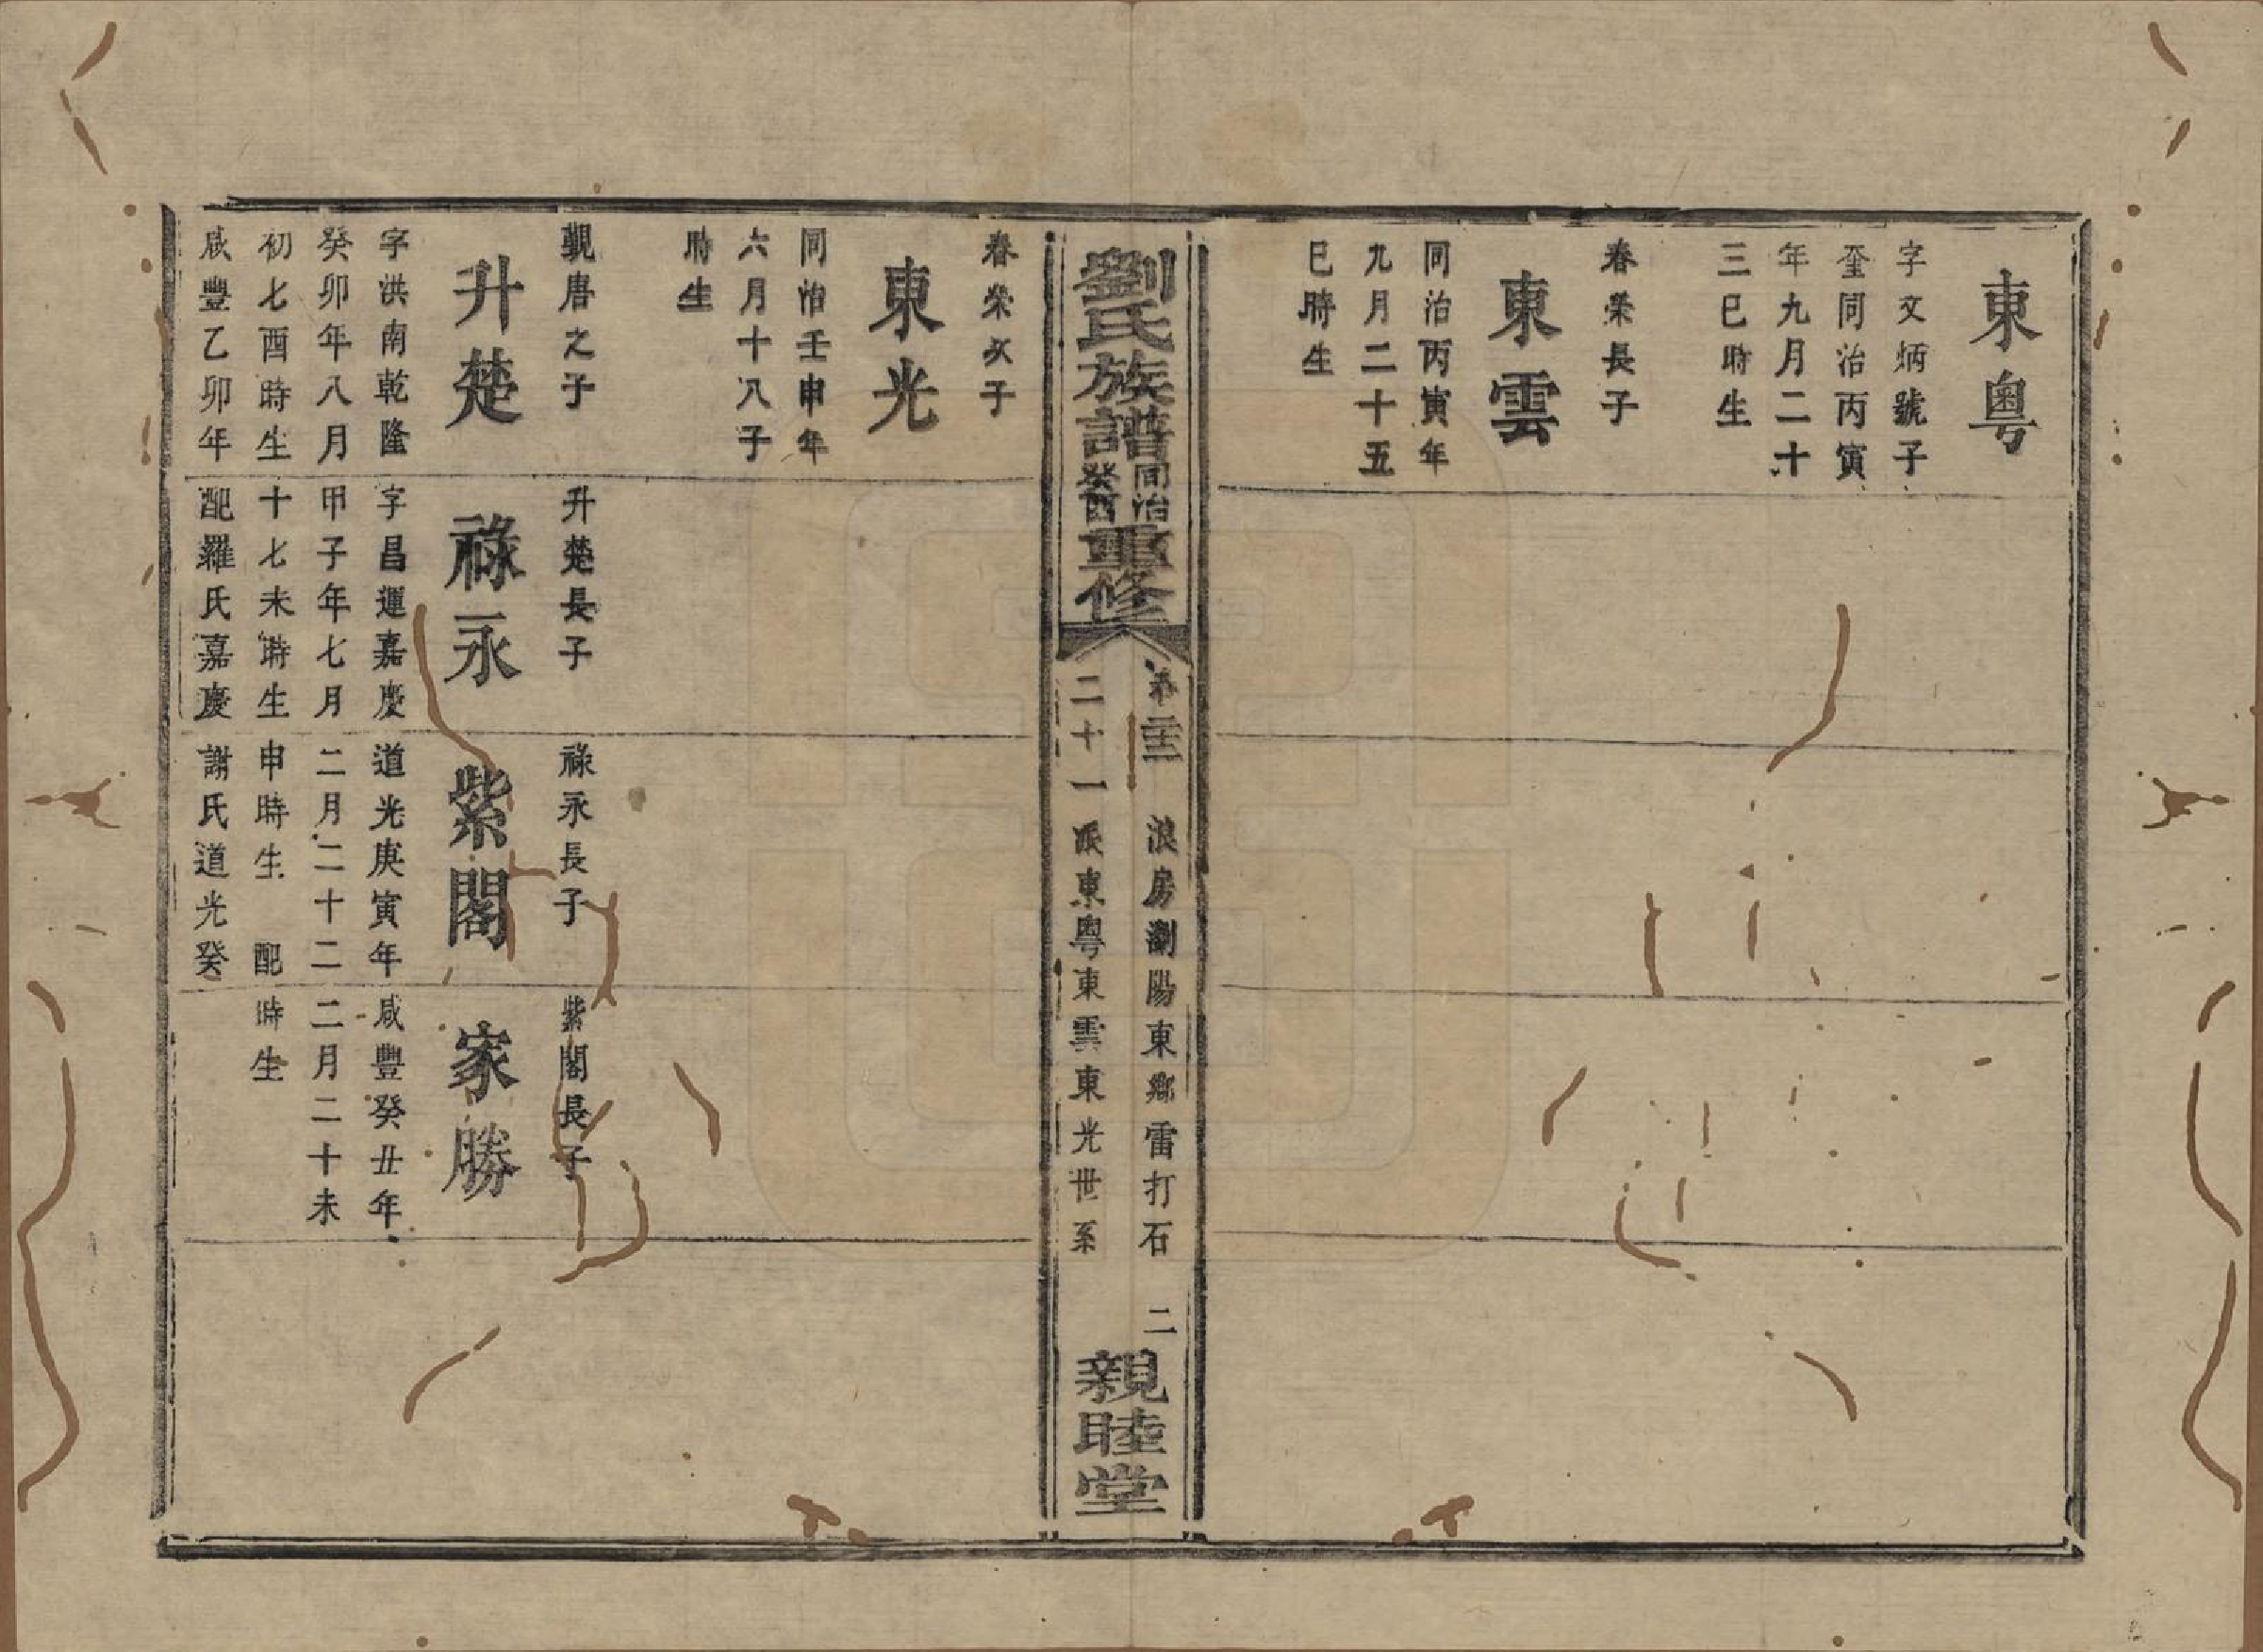 東粵
字文炳號子
奎同治丙寅
年九月二十
三巳時生
春榮長子
東雲
同治丙寅年
九月二十五
巳時生
劉氏族譜
同治
癸酉
重修
卷二十三
浪房瀏陽東鄉雷打石
二
二十一派東粵東雲東光世系
親睦堂
春榮次子
東光
同治壬申年
六月十八子
時生
觀唐之子
升楚
字洪南乾隆
癸卯年八月
初七酉時生
咸豐乙卯年
升楚長子
祿永
字昌運嘉慶
甲子年七月
十七未時生
配羅氏嘉慶
祿永長子
紫閣
道光庚寅年
二月二十二
申時生 配
謝氏道光癸
紫閣長子
家勝
咸豐癸丑年
二月二十未
時生